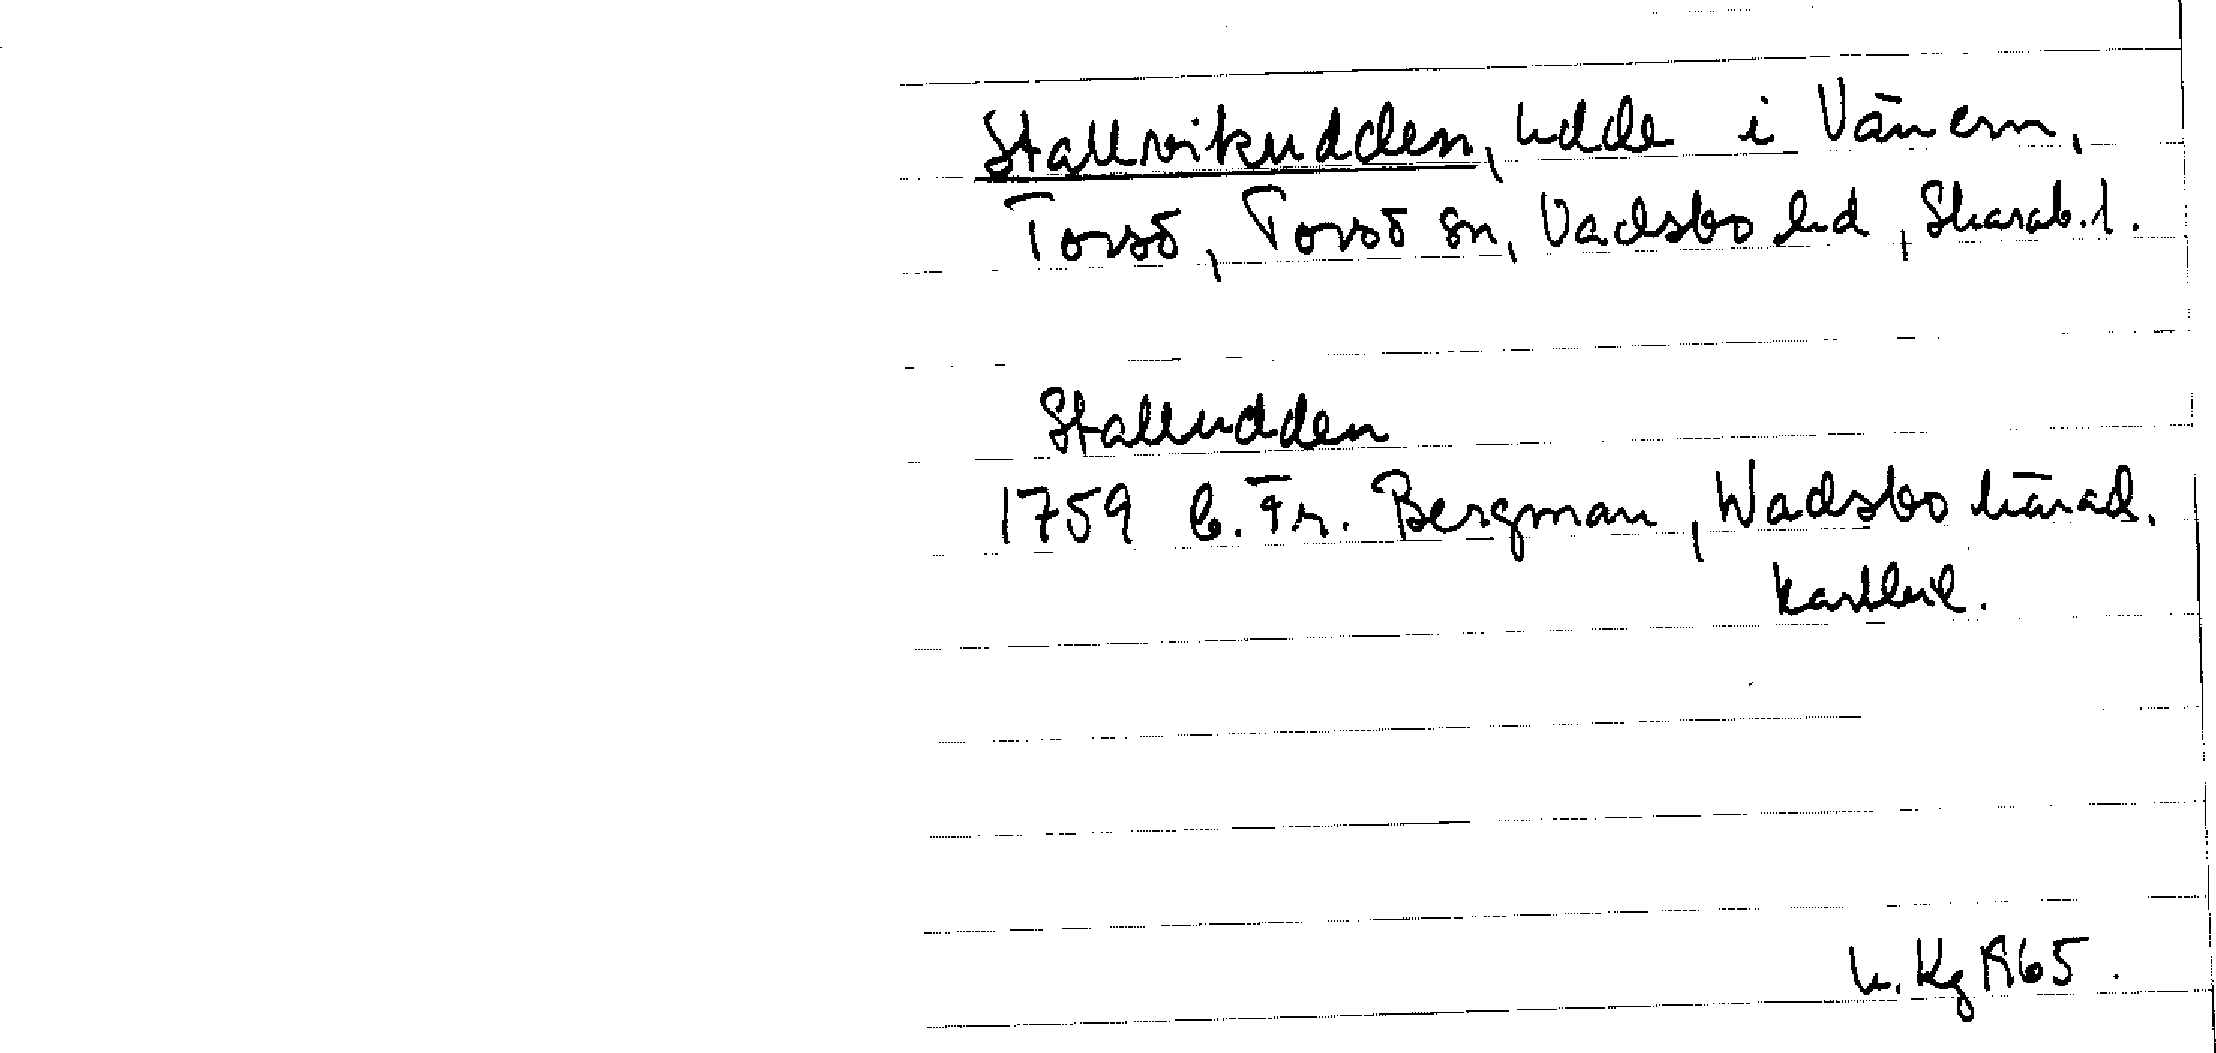 Stallvikudden, udde i Vänern,
Torsö, Torsö sn, Vadsbo hd, Skarab. l.
Stalludden
1759 C. Fr. Bergman, Wadsbo härad.
K. Kg A65.